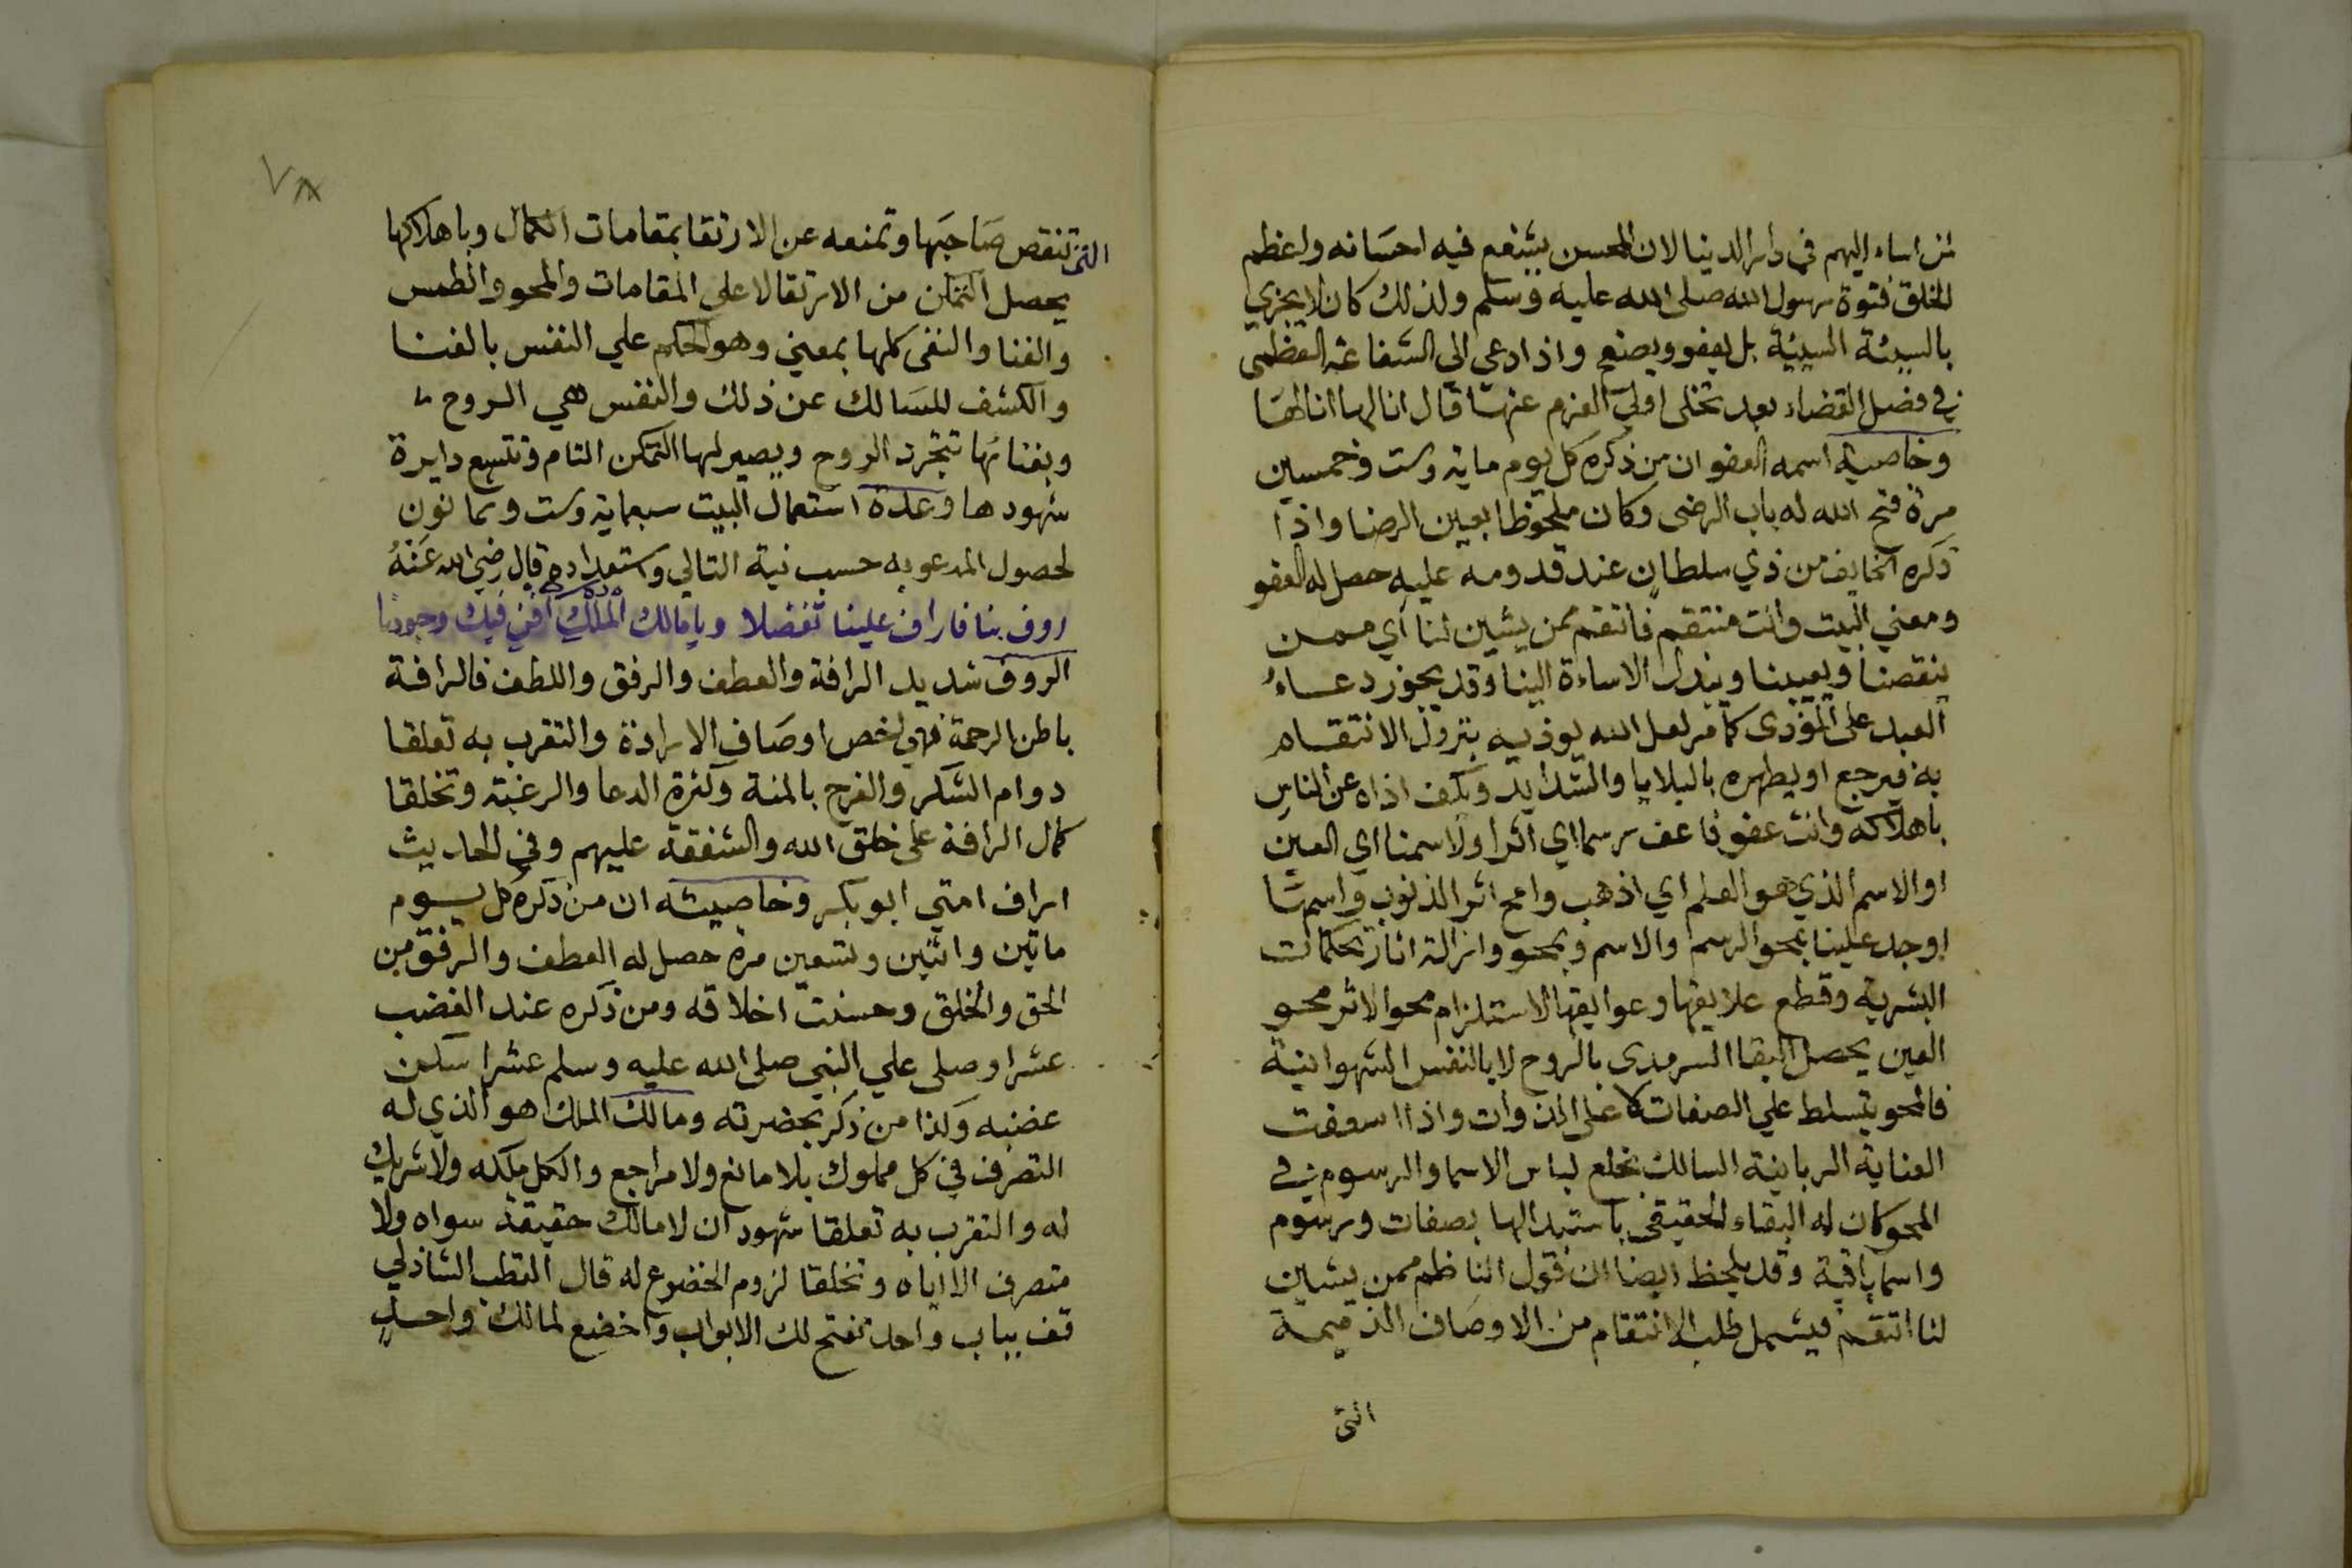 من اساء اليهم في دار الدنيا لان المحسن يشفع فيه احسانه واعظم
الخلق فتوة رسول الله صلى الله عليه وسلم ولذلك كان لا يجزي
بالسيئة السيئة بل يعفو ويصفح واذا دعي الى الشفاعة العظمى
في فصل القضاء بعد تخلى اولي العزم عنها قال انا لها انا لها
وخاصية اسمه العفو ان من ذكره كل يوم ماية وست وخمسين
مرة فتح الله له باب الرضى وكان ملحوظا بعين الرضا واذا
ذكره الخايف من ذي سلطان عند قدومه عليه حصل له العفو
ومعني البيت وانت منتقم فانتقم ممن يشين لنا اي ممن
ينقصنا ويعيبنا ويبذل الاساءة الينا وقد يجوز دعاء
العبد على المؤذى كما مر لعل الله يوذيه بنزول الانتقام
به فيرجع او يطهره بالبلايا والشدايد ويكف اذاه عن الناس
باهلاكه وانت عفو فاعف رسما اي اثرا ولاسمنا اي العين
او الاسم الذي هو العلم اي اذهب وامح اثر الذنوب واسمنا
اوجد علينا بمحو الرسم والاسم وبمحو وازالة اثار تحكمات
البشرية وقطع علايقها وعوايقها لاستلزام محو الاثر محو
العين يحصل البقا السرمدى بالروح لا بالنفس الشهوانية
فالمحو يتسلط علي الصفات لا على الذوات واذا اسعفت
العناية الربانية السالك بخلع لباس الاسما والرسوم في
المحو كان له البقاء الحقيقى باستبدالها بصفات ورسوم
واسما باقية وقد يلحظ ايضا ان قول الناظم ممن يشين
لنا انتقم فيشمل طلب الانتقام من الاوصاف الذميمة
التى
٧٨
التى تنقص صاحبها وتمنعه عن الارتقا بمقامات الكمال وباهلاكها
يحصل التمكن من الارتقالا على المقامات والمحو والطمس
والفنا والنفى كلها بمعني وهو الحكم علي النفس بالفنا
والكشف للسالك عن ذلك والنفس هي الروح
وبفنائها تتجرد الروح ويصير لها التمكن التام وتتسع دايرة
شهودها وعدة استعمال البيت سبعماية وست وثمانون
لحصول المدعو به حسب نية التالي واستعداده قال رضي الله عنه
روف بنا فاراف علينا تفضلا ويا مالك الملك افن فيك وجودنا
الروف شديد الرافة والعطف والرفق واللطف فالرافة
باطن الرحمة فهي اخص اوصاف الارادة والتقرب به تعلقا
دوام الشكر والفرح بالمنة وكثرة الدعا والرغبة وتخلقا
كمال الرافة على خلق الله والشفقة عليهم وفي الحديث
اراف امتي ابو بكر وخاصيته ان من ذكره كل يوم
ماتين واثنين وتسعين مرة حصل له العطف والرفق من
الحق والخلق وحسنت اخلاقه ومن ذكره عند الغضب
عشرا وصلى علي النبي صلى الله عليه وسلم عشرا سكن
غضبه وكذا من ذكر بحضرته ومالك الملك هو الذي له
التصرف في كل مملوك بلا مانع ولا مراجع والكل ملكه ولا شريك
له والتقرب به تعلقا شهود ان لا مالك حقيقة سواه ولا
متصرف الا اياه وتخلقا لزوم الخضوع له قال القطب الشاذلي
قف بباب واحد تفتح لك الابواب واخضع لمالك واحد